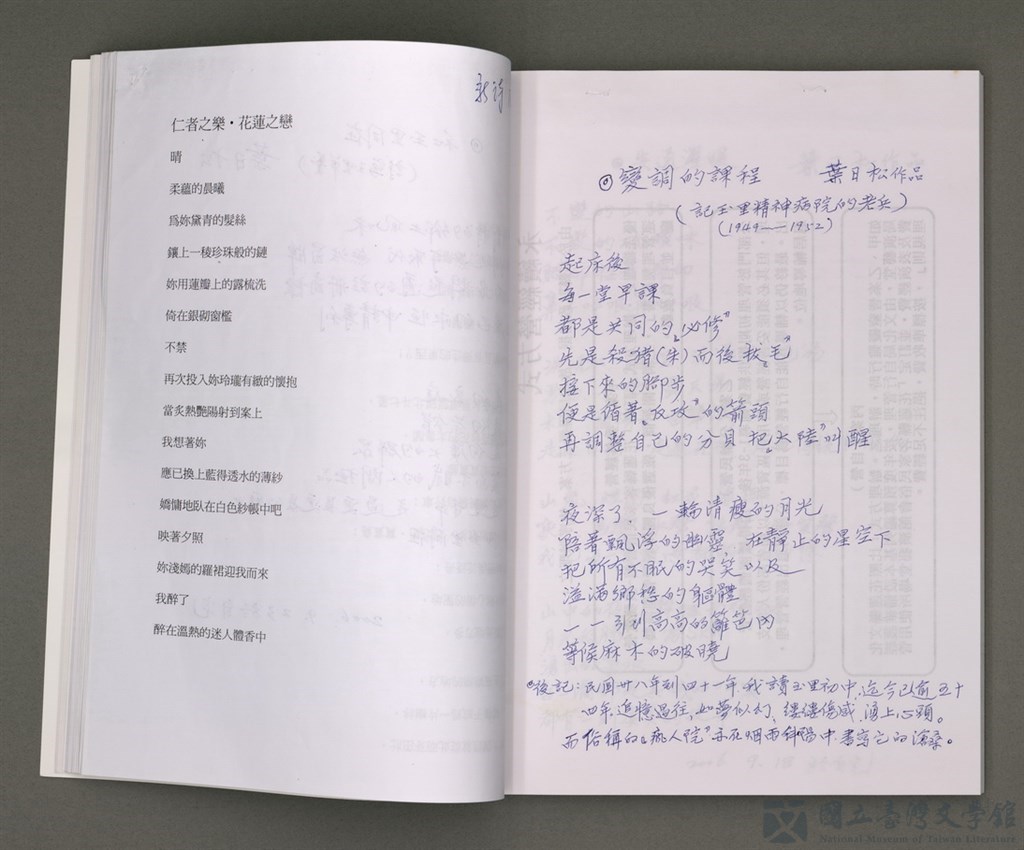 新詩
仁者之樂・花蓮之戀
晴
柔蘊的晨曦
為妳黛青的髮絲
鑲上一稜珍珠般的鏈
妳用蓮瓣上的露梳洗
倚在銀砌窗檻
不禁
再次投入妳玲瓏有緻的懷抱
當炙熱艷陽射到案上
我想著妳
應已換上藍得透水的薄紗
嬌慵地臥在白色紗帳中吧
映著夕照
妳淺嫣的羅裙迎我而來
我醉了
醉在溫熱的迷人體香中
◎變調的課程 葉日松作品
(記玉里精神病院的老兵)
(1949——1952)
起床後
每一堂早課
都是共同的"必修"
先是殺豬(朱)而後拔"毛"
接下來的腳步
便是循著"反攻"的箭頭
再調整自己的分貝 把"大陸"叫醒
夜深了.一輪清瘦的月光
陪著飄浮的幽靈 在靜止的星空下
把所有不眠的哭笑以及
溢滿鄉愁的軀體
一一引到高高的籬笆內
等候麻木的破曉
◎後記:民國卅八年到四十一年.我讀玉里初中.迄今已逾五十
四年.追憶過往.如夢似幻.縷縷傷感.湧上心頭。
而俗稱的"瘋人院"亦在烟雨斜陽中.書寫它的滄桑。
國立臺灣文學館
National Museum of Taiwan Literature